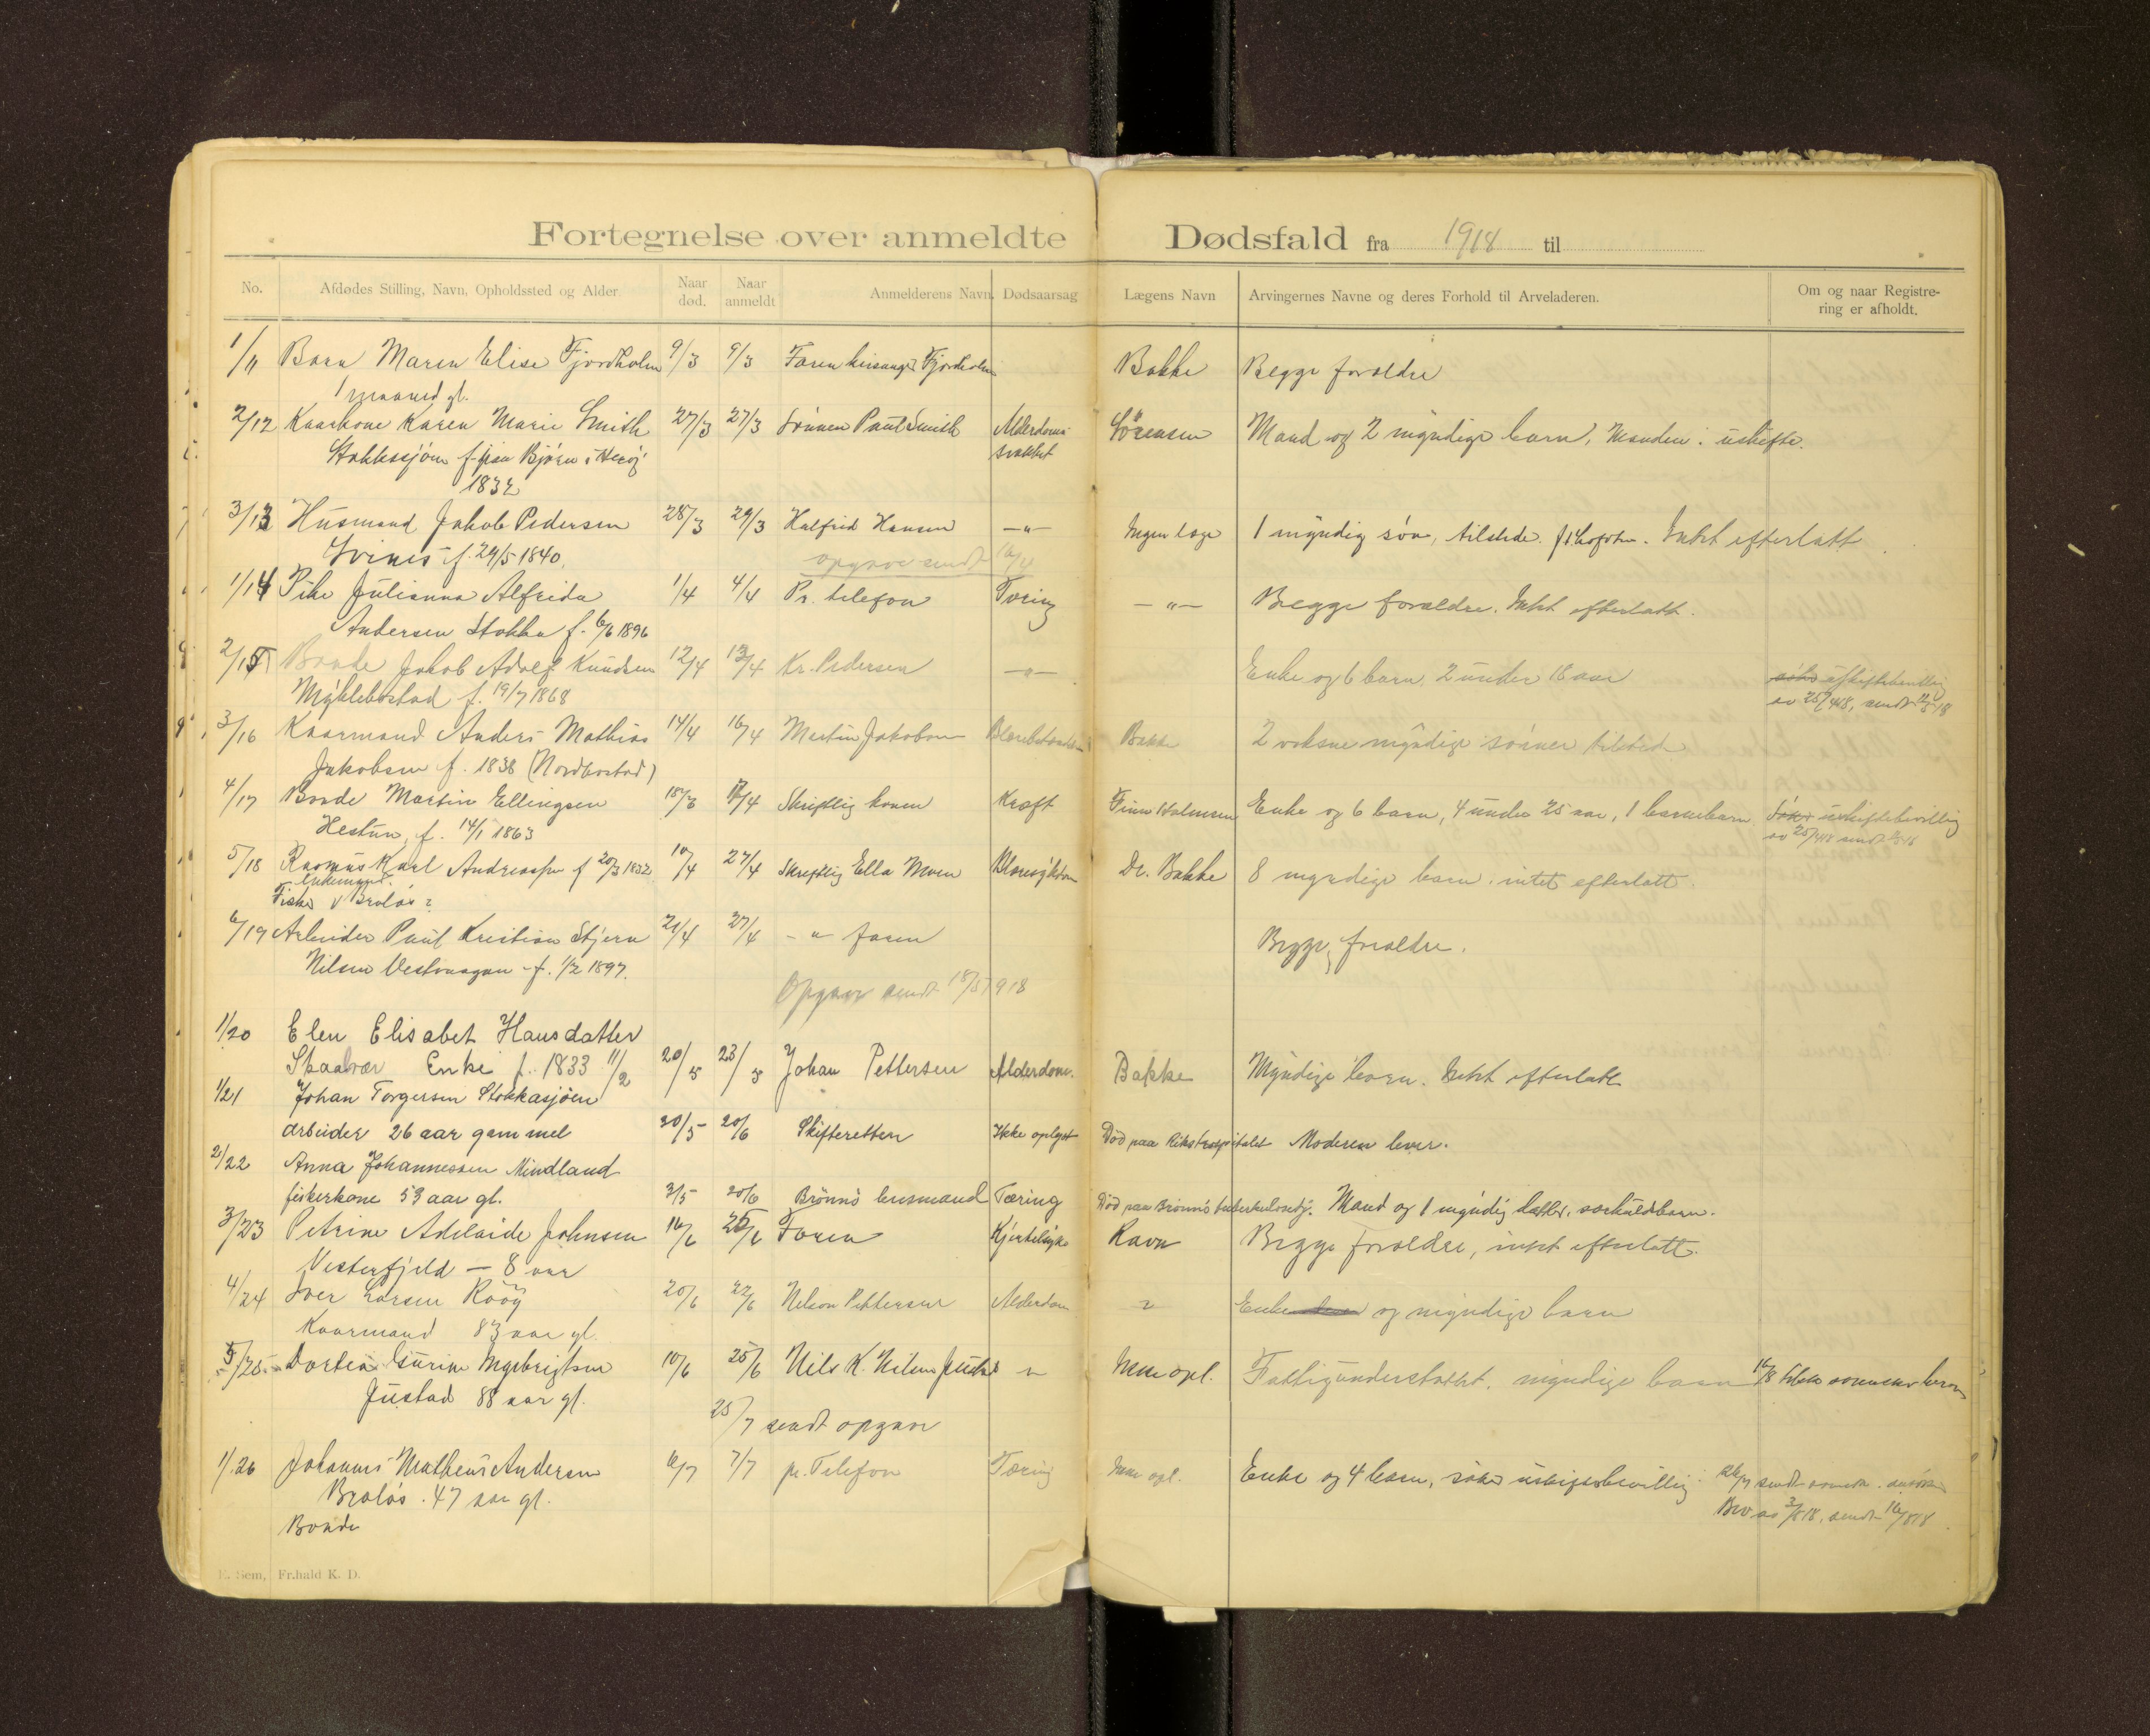 Fortegnelse over anmeldte Dødsfald fra 1918 til
No. Afdødes Stilling, Navn, Opholdssted og Alder. Naar død. Naar anmeldt Anmelderens Navn. Dødsaarsag Lægens Navn Arvingernes Navne og deres Forhold til Arveladeren. Om og naar Registrering er afholdt.
1/11 Barn Maren Elise Fjordholm 9/3 9/3 Faren Fjordholm Bakke Begge forældre
1 maaned gl.
2/12 Kaarkone Karen Marie Smith 27/3 27/3 Sønnen Paul Smith Alderdoms- Sørensen Mand og 2 myndige barn, Manden i uskifte.
Stokkasjøen f. paa Bjørn i Herøy svakhet
1832
3/13 Husmand Jakob Pedersen 28/3 29/3 Halfrid Hansen —"— Ingen læge 1 myndig søn, tilstede Intet efterlatt
Svines f. 29/5 1840. opgave sendt 16/4
1/14 Pike Julianna Alfrida 1/4 4/4 Pr. telefon Tæring —"— Begge forældre. Intet efterlatt.
Andersen Stokka f. 6/6 1896
2/15 Bonde Jakob Adolf Knudsen 12/4 13/4 Kr. Pedersen —"— Enke og 6 barn, 2 under 18 aar søker uskiftebevillig
Myklebostad f. 19/7 1868 av 25/4 18, sendt
3/16 Kaarmand Anders Mathias 14/4 16/4 Martin Jakobsen Bakke 2 voksne myndige sønner tilstede
Jakobsen f. 1838 (Nordbostad)
4/17 Bonde Martin Ellingsen 18/3 17/4 Skriftlig konen Kræft Finn Holmsen Enke og 6 barn, 4 under 25 aar, 1 barnebarn Søker uskiftebevillig
Hestun, f. 14/1 1863 av 25/4 18 sendt
5/18 Rasmus Karl Andreassen f 20/3 1832 10/4 27/4 Skriftlig Ella Moen Dr. Bakke 8 myndige barn. intet efterlatt.
Enkemand.
Fisker Brøløs
6/19 Arbeider Paul Kristian Stjern 21/4 27/4 - " faren Begge forældre.
Nilsen Vestvaagan f. 1/2 1897.
Opgave sendt 18/5 1918
1/20 Elen Elisabet Hansdatter
Skaalvær Enke f. 1833 11/2 20/5 23/5 Johan Pettersen Alderdom. Bakke Myndige barn. Intet efterlatt
1/21 Johan Torgersen Stokkasjøen
arbeider 26 aar gammel 20/5 20/6 Skifteretten Ikke oplyst Død paa Rikshospitalet Moderen lever.
2/22 Anna Johannessen Mindland
fiskerkone 53 aar gl. 3/5 20/6 Brønnø lensmand Tæring Død paa Brønnø tuberkulosehj. Mand og 1 myndig datter, særkuldbarn.
3/23 Petrine Adelaide Johnsen 16/6 25/6 Faren Ravn Begge forældre, intet efterlatt.
Vesterfjeld — 8 aar
4/24 Iver Larsen Røøy 20/6 22/6 Nelson Pettersen Alderdom " Enke og myndige barn
Kaarmand 83 aar gl.
5/25 Dortea Gurine Ingebrigtsen 10/6 25/6 Nils K. Nilsen Justad " Ikke opl. Fattigunderstøttet, myndige barn
Justad 88 aar gl.
25/7 sendt opgave
1/26 Johannes Matheus Andersen 6/7 7/7 pr. Telefon Tæring Ikke opl. Enke og 4 barn, søker uskiftebevillig
Brøløs. 47 aar gl. Bev. av 3/8 18, sendt 16/8 18
Bonde
E. Sem, Fr.hald K. D.